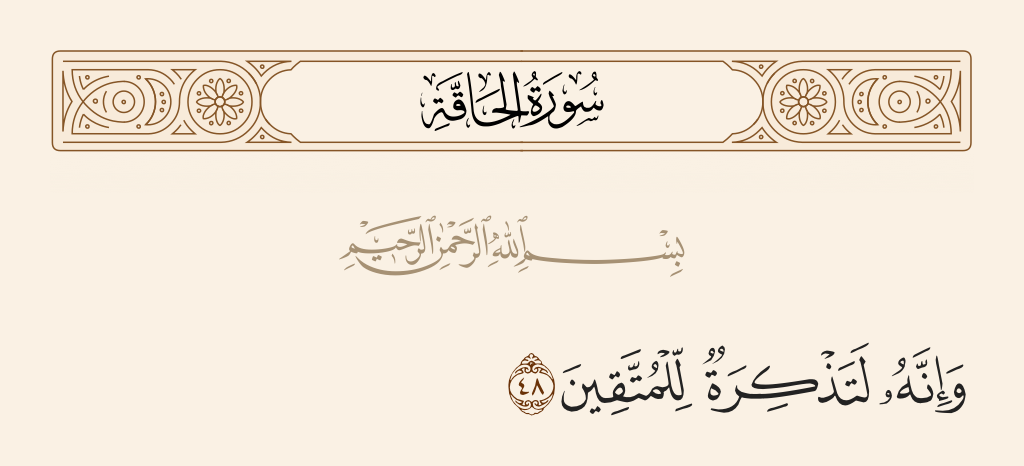 سُورَةُ الْحَاقَّةِ
بِسْمِ ٱللَّهِ ٱلرَّحْمَٰنِ ٱلرَّحِيمِ
وَإِنَّهُۥ لَتَذْكِرَةٌ لِّلْمُتَّقِينَ ٤٨